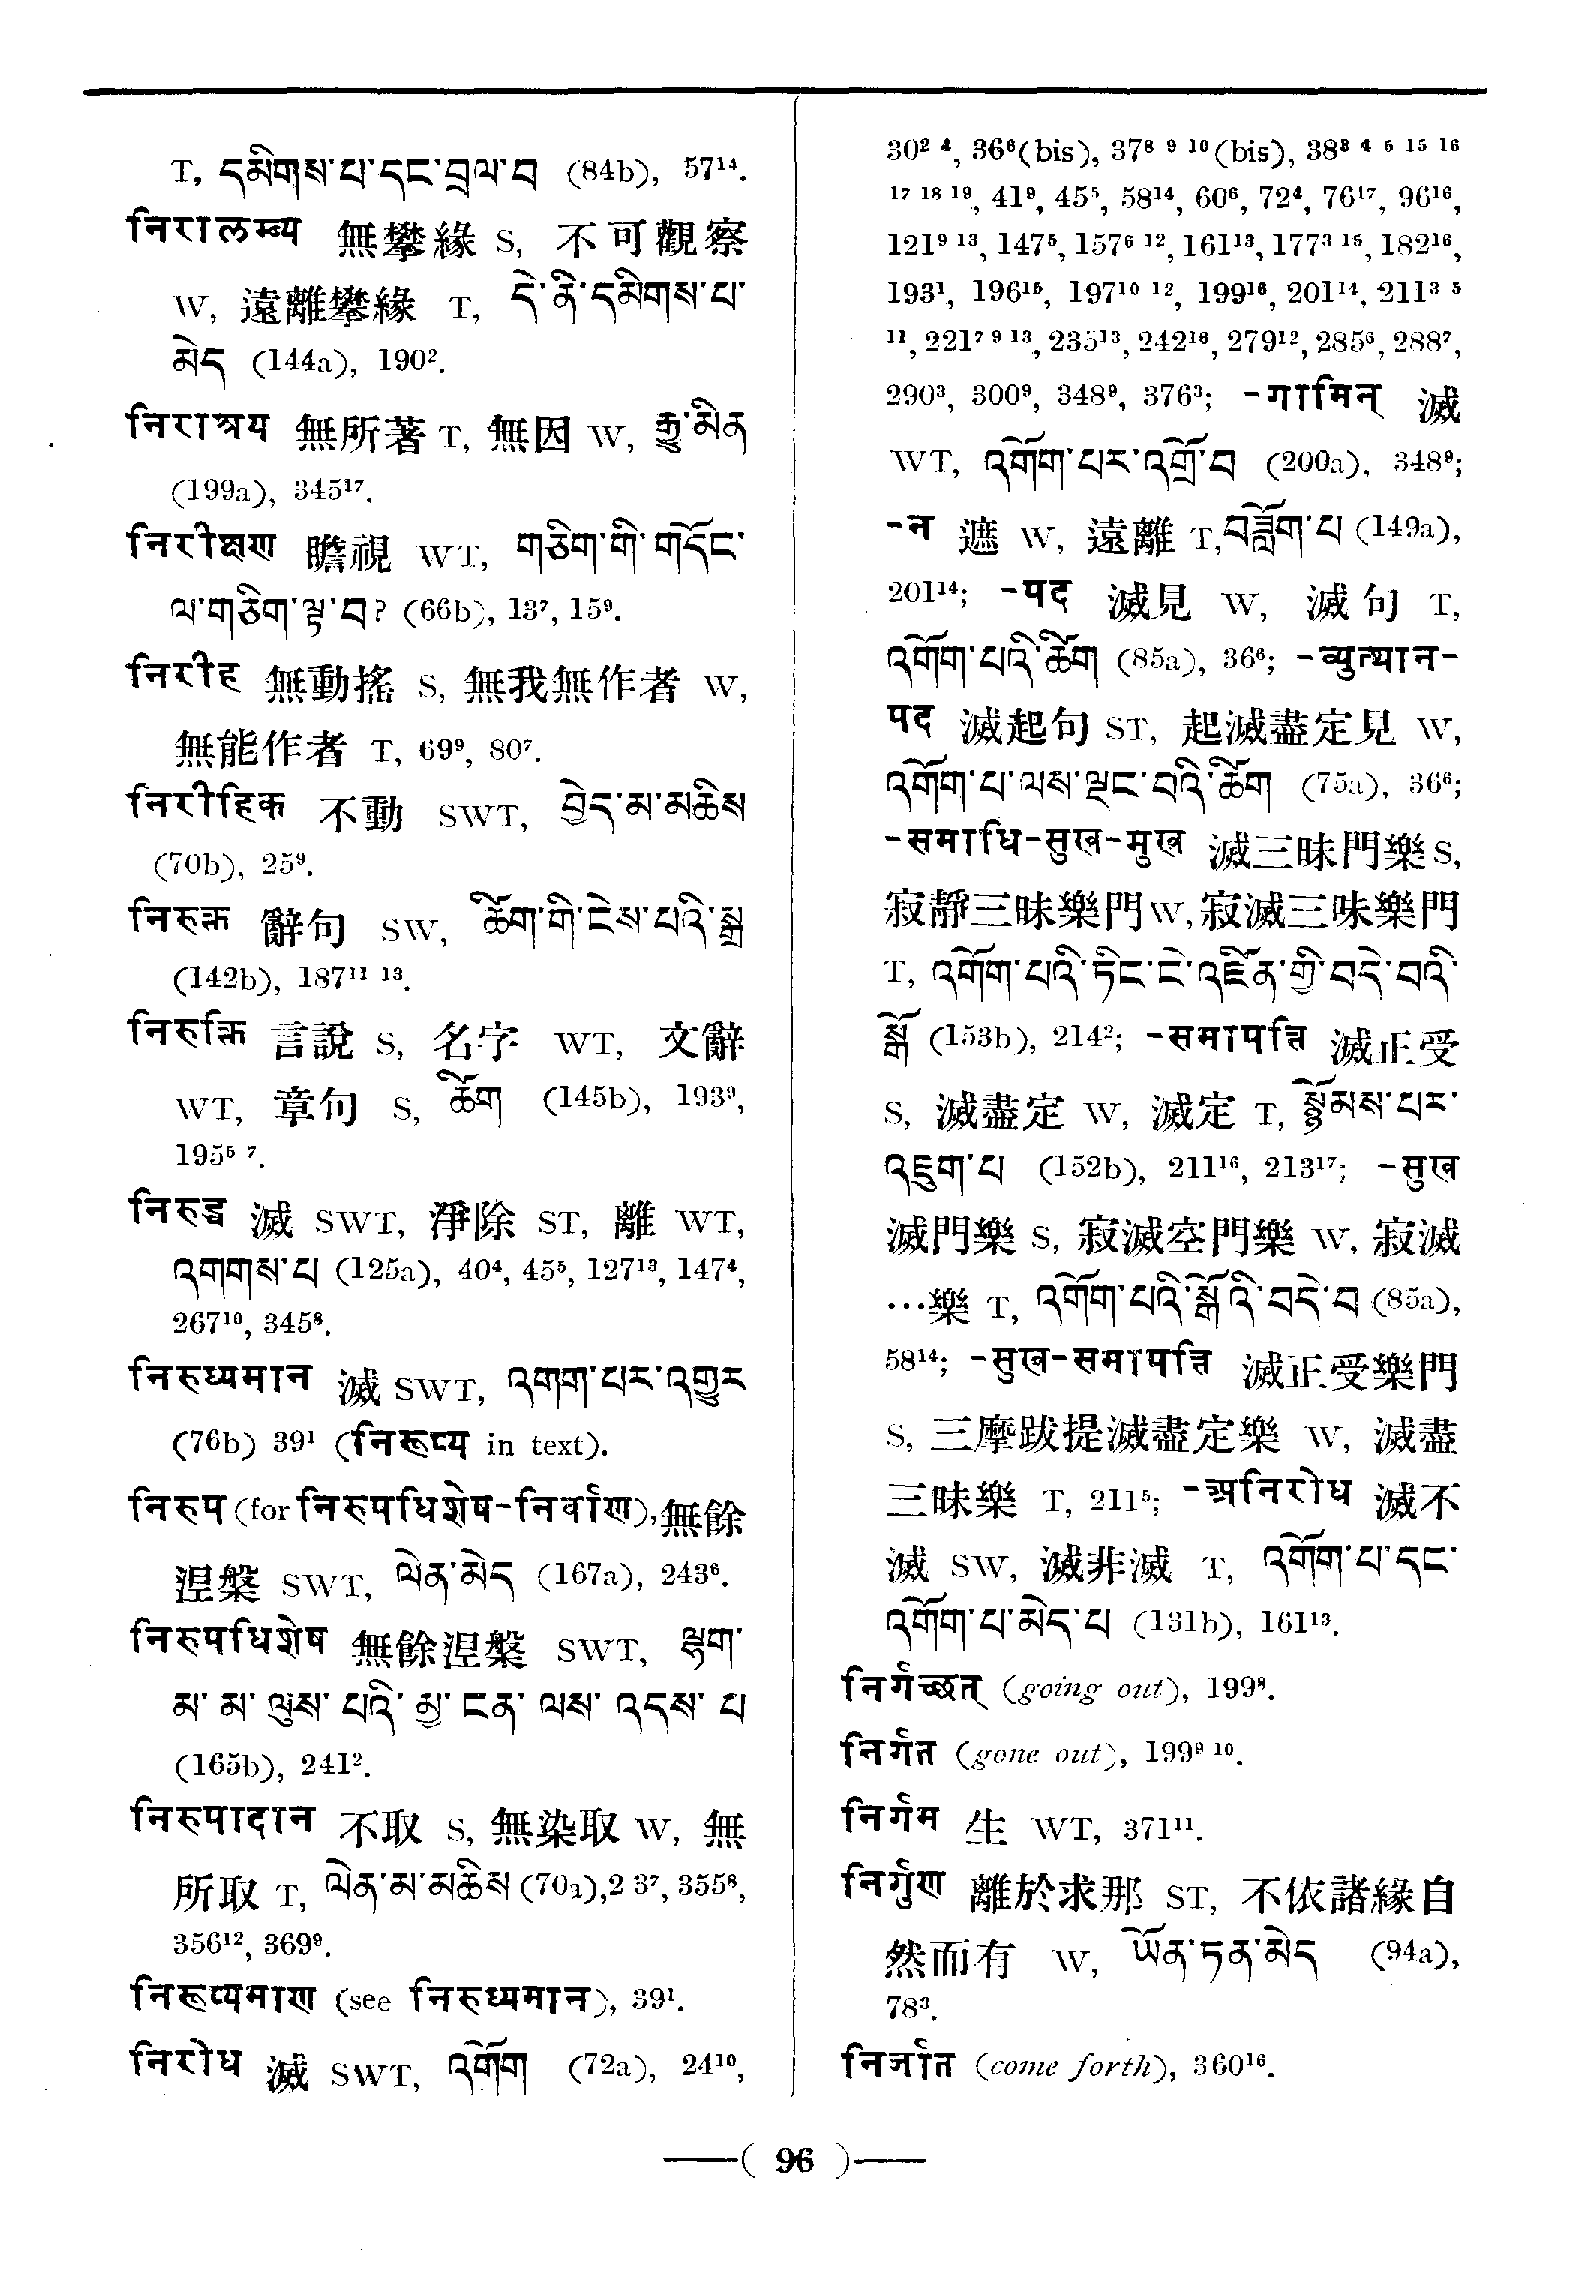 T, དམིགས་པ་དང་བྲལ་བ (84b), 57¹⁴.
निरालम्ब्य 無攀緣 S, 不可觀察
W, 遠離攀緣 T, དེ་ནི་དམིགས་པ་
མེད (144a), 190².
निराश्रय 無所著 T, 無因 W, རྒྱུ་མིན
(199a), 345¹⁷.
निरीक्षण 瞻視 WT, གཅིག་གི་གདོང་
ལ་གཅིག་ལྟ་བ? (66b), 13⁷, 15⁹.
निरीह 無動搖 S, 無我無作者 W,
無能作者 T, 69⁹, 80⁷.
निरीहिक 不動 SWT, བྱེད་མ་མཆིས
(70b), 25⁹.
निरुक्त 辭句 SW, ཚིག་གི་ངེས་པའི་སྒྲ
(142b), 187¹¹ ¹³.
निरुक्ति 言說 S, 名字 WT, 文辭
WT, 章句 S, ཚིག (145b), 193⁹,
195⁵ ⁷.
निरुद्ध 滅 SWT, 淨除 ST, 離 WT,
འགགས་པ (125a), 40⁴, 45⁵, 127¹³, 147⁴,
267¹⁰, 345⁸.
निरुध्यमान 滅 SWT, འགག་པར་འགྱུར
(76b) 39¹ (निरूप्य in text).
निरुप (for निरुपधिशेष-निर्वाण), 無餘
涅槃 SWT, ལེན་མེད (167a), 243⁶.
निरुपधिशेष 無餘涅槃 SWT, ལྷག་
མ་ མ་ ལུས་ པའི་ མྱ་ ངན་ ལས་ འདས་ པ
(165b), 241².
निरुपादान 不取 S, 無染取 W, 無
所取 T, ལེན་མ་མཆིས (70a), 2 3⁷, 355⁸,
356¹², 369⁹.
निरूप्यमाण (see निरुध्यमान), 39¹.
निरोध 滅 SWT, འགོག (72a), 24¹⁰,
30² ⁴, 36⁶(bis), 37⁸ ⁹ ¹⁰(bis), 38³ ⁴ ⁶ ¹⁵ ¹⁶
¹⁷ ¹⁸ ¹⁹, 41⁹, 45⁵, 58¹⁴, 60⁶, 72⁴, 76¹⁷, 96¹⁶,
121⁹ ¹³, 147⁵, 157⁶ ¹², 161¹³, 177³ ¹⁵, 182¹⁶,
193¹, 196¹⁵, 197¹⁰ ¹², 199¹⁶, 201¹⁴, 211³ ⁵
¹¹, 221⁷ ⁹ ¹³, 235¹³, 242¹⁶, 279¹², 285⁶, 288⁷,
290³, 300⁹, 348⁹, 376³; -गामिन् 滅
WT, འགོག་པར་འགྲོ་བ (200a), 348⁹;
-न 遮 W, 遠離 T, བཟློག་པ (149a),
201¹⁴; -पद 滅見 W, 滅句 T,
འགོག་པའི་ཚིག (85a), 36⁶; -व्युत्थान-
पद 滅起句 ST, 起滅盡定見 W,
འགོག་པ་ལས་ལྡང་བའི་ཚིག (75a), 36⁶;
-समाधि-सुख-मुख 滅三昧門樂 S,
寂靜三昧樂門 W, 寂滅三昧樂門
T, འགོག་པའི་ཏིང་ངེ་འཛིན་གྱི་བདེ་བའི་
སྒོ (153b), 214²; -समापत्ति 滅正受
S, 滅盡定 W, 滅定 T, སྙོམས་པར་
འཇུག་པ (152b), 211¹⁶, 213¹⁷; -सुख
滅門樂 S, 寂滅空門樂 W, 寂滅
…樂 T, འགོག་པའི་སྒོའི་བདེ་བ (85a),
58¹⁴; -सुख-समापत्ति 滅正受樂門
S, 三摩跋提滅盡定樂 W, 滅盡
三昧樂 T, 211⁵; -अनिरोध 滅不
滅 SW, 滅非滅 T, འགོག་པ་དང་
འགོག་པ་མེད་པ (131b), 161¹³.
निर्गच्छत् (going out), 199⁸.
निर्गत (gone out), 199⁹ ¹⁰.
निर्गम 生 WT, 371¹¹.
निर्गुण 離於求那 ST, 不依諸緣自
然而有 W, ཡོན་ཏན་མེད (94a),
78³.
निर्जात (come forth), 360¹⁶.
—( 96 )—